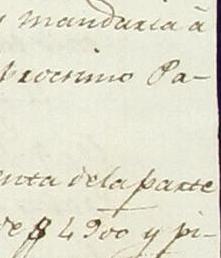 y mandaria à
procsimo Pa-
enta dela parte
de $ 4900 y pi-